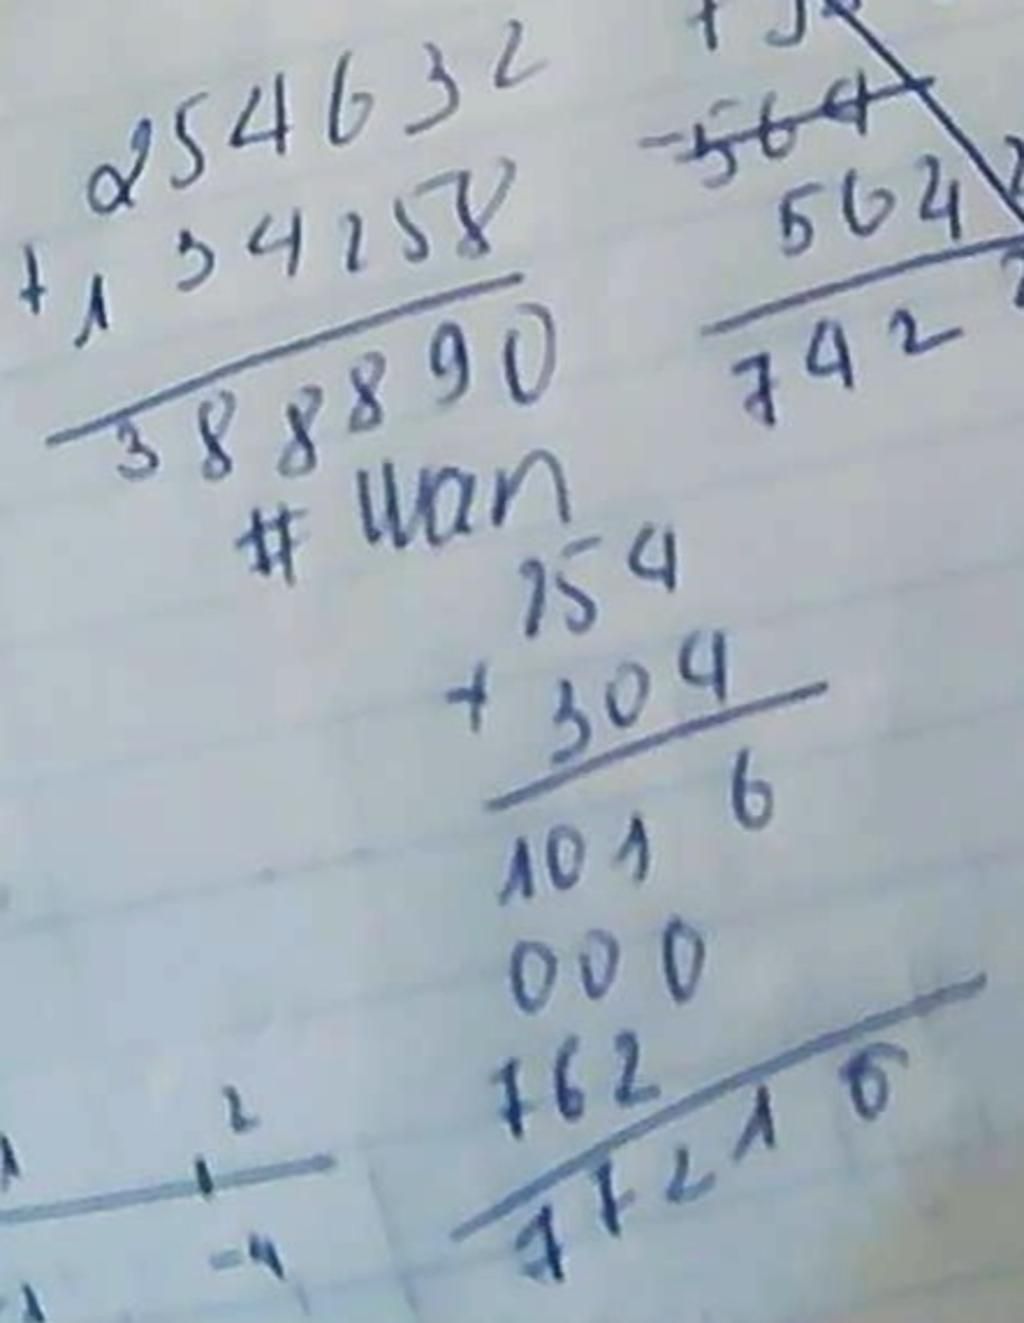 254632
+ 134258
388890
564
564
742
# Шап
254
+ 304
1016
000
762
77216
2
-4